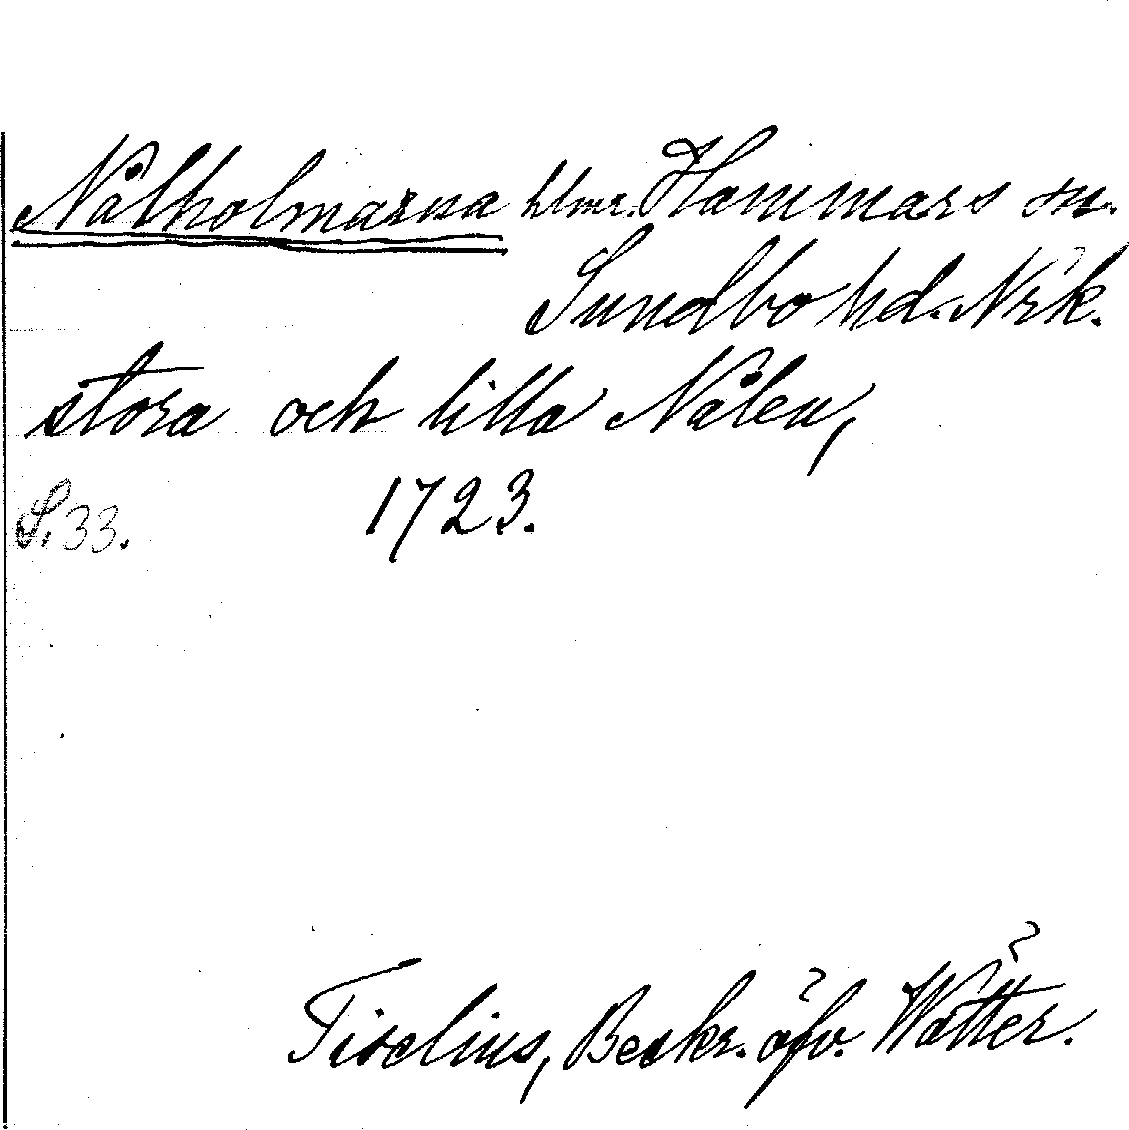 Nålholmarna hlmr. Hammars sn.
Sundbo hd. Nrk.
stora och lilla Nålen,
S. 33. 1723.
Tiselius, Beskr. öfv. Wätter.